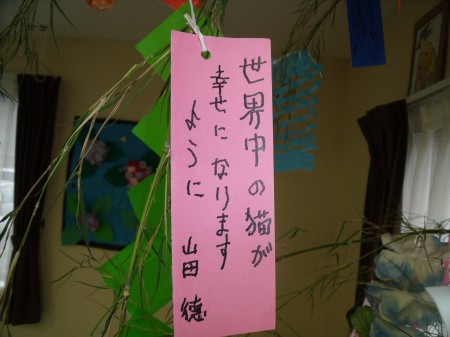 世界中の猫が
幸せになります
ように
山田 徳